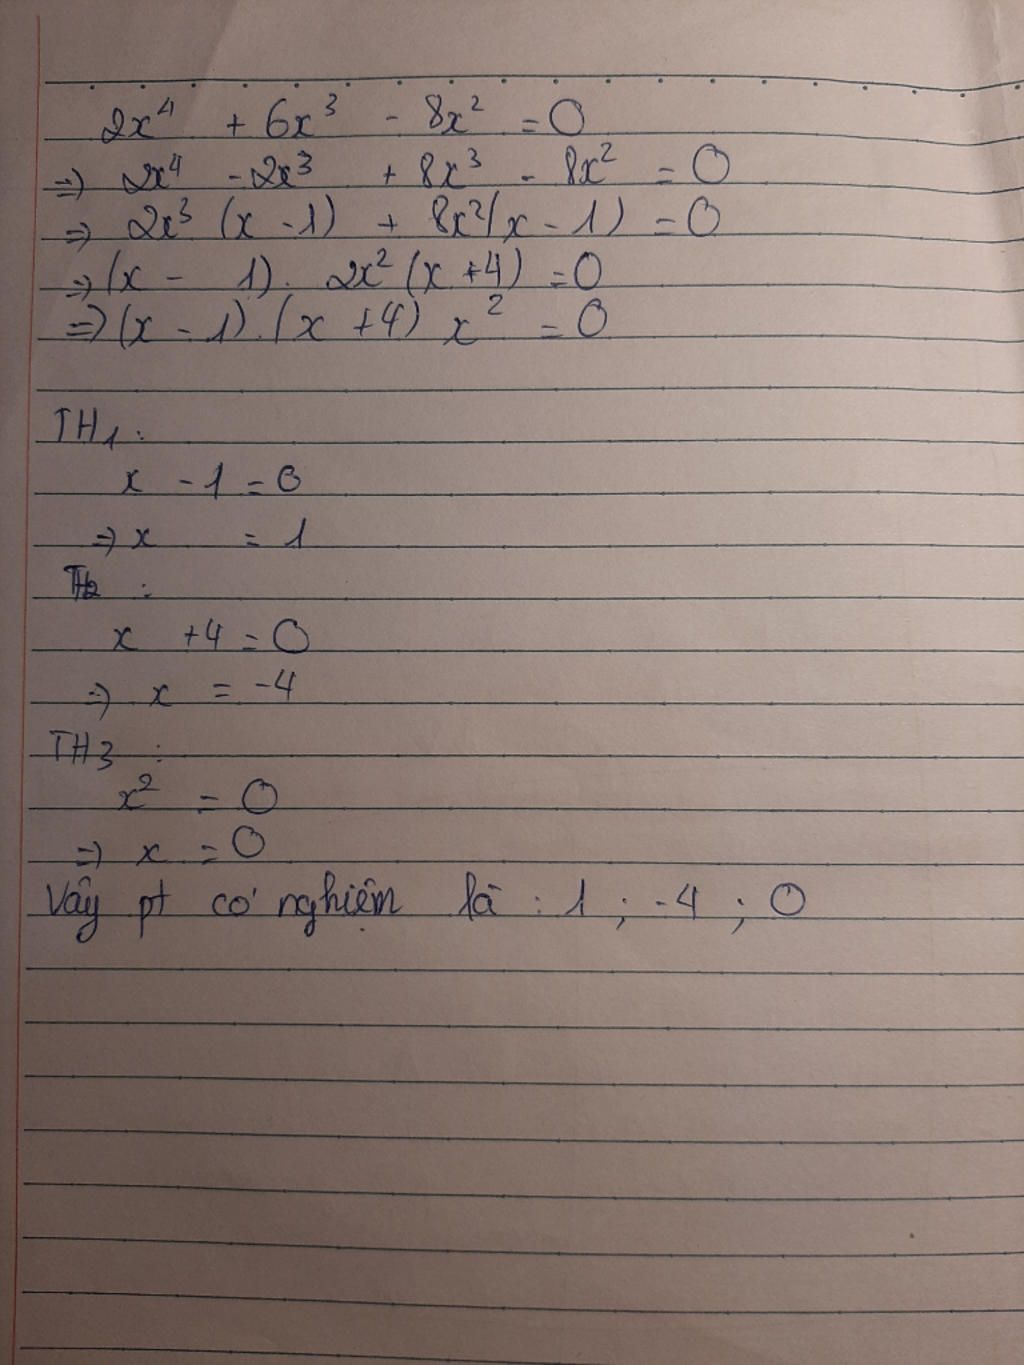 2x⁴ + 6x³ - 8x² = 0
=> 2x⁴ - 2x³ + 8x³ - 8x² = 0
=> 2x³ (x - 1) + 8x² (x - 1) = 0
=> (x - 1). 2x² (x + 4) = 0
=> (x - 1).(x + 4) x² = 0
TH1:
x - 1 = 0
=> x = 1
TH2 :
x + 4 = 0
=> x = -4
TH3 :
x² = 0
=> x = 0
Vậy pt có nghiệm là : 1 ; -4 ; 0